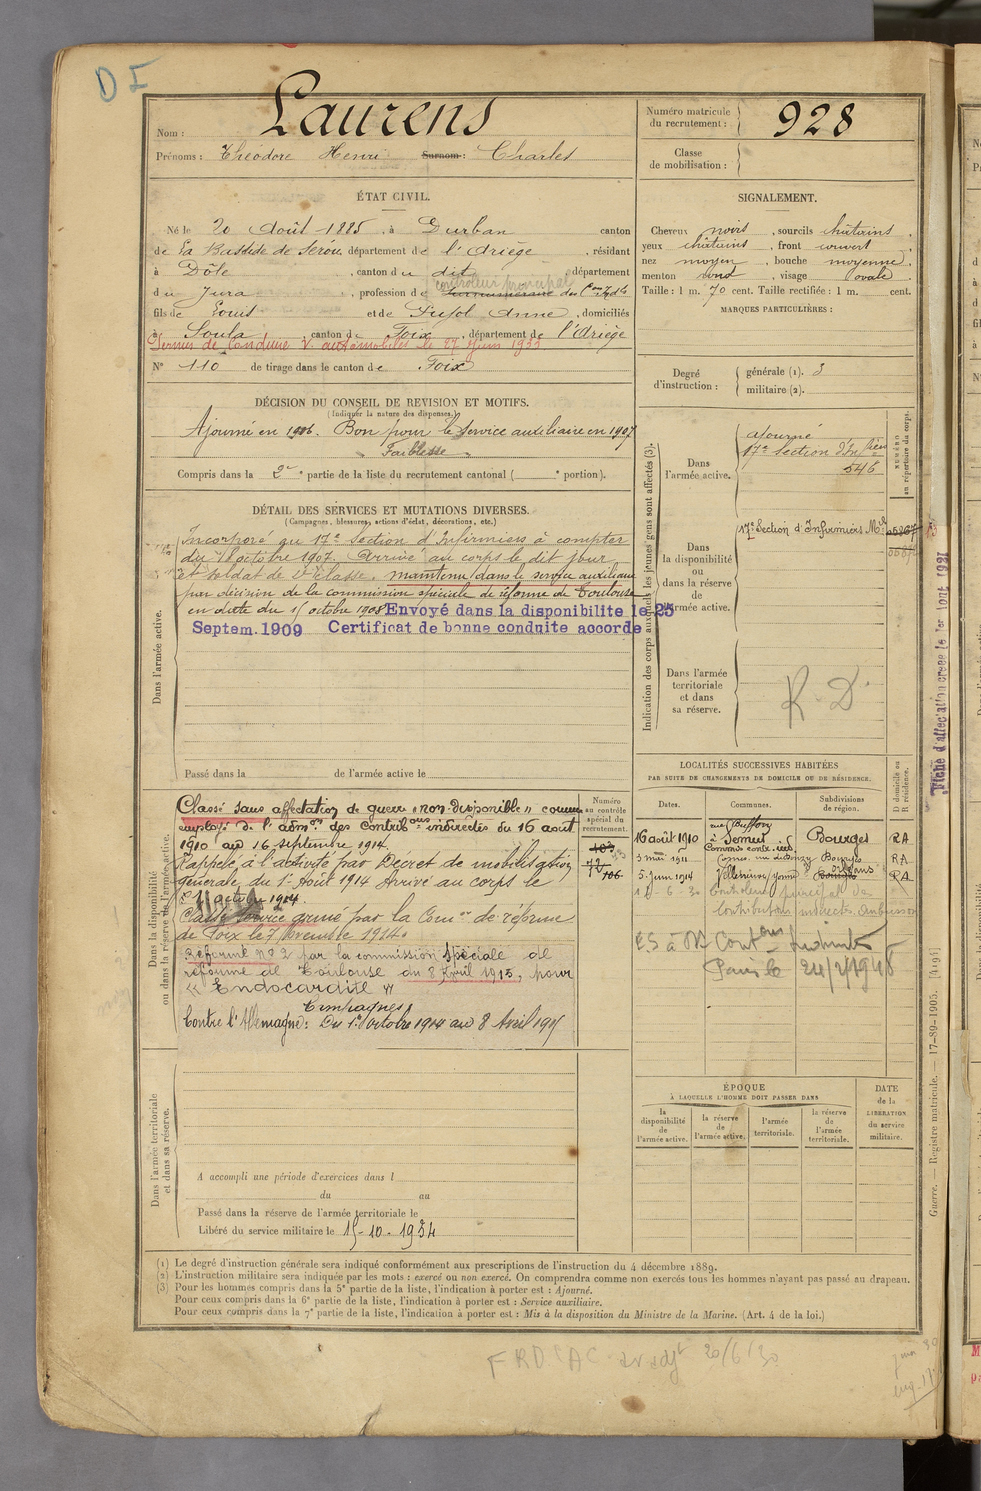 DF
Nom : Laurens
Prénoms : Théodore Henri Surnom : Charles
Numéro matricule
du recrutement :
928
Classe
de mobilisation :
ÉTAT CIVIL.
Né le 20 Août 1885, à Durban canton
de La Bastide de Sérou, département de l'Ariège, résidant
à Dôle, canton du dit, département
contrôleur principal
du Jura, profession de des Cons Indtes
fils de Louis et de Pujol Anne, domiciliés
à Soula, canton de Foix, département de l'Ariège
Permis de Conduire V. automobiles le 27 Juin 1933
N° 110 de tirage dans le canton de Foix
SIGNALEMENT.
Cheveux noirs, sourcils châtains,
yeux châtains, front couvert,
nez moyen, bouche moyenne,
menton rond, visage ovale.
Taille : 1 m. 70 cent. Taille rectifiée : 1 m. cent.
MARQUES PARTICULIÈRES :
Degré
d'instruction :
générale (1). 3
militaire (2).
DÉCISION DU CONSEIL DE REVISION ET MOTIFS.
(Indiquer la nature des dispenses.)
Ajourné en 1906. Bon pour le Service auxiliaire en 1907
Faiblesse
Compris dans la 2e partie de la liste du recrutement cantonal ( e portion).
DÉTAIL DES SERVICES ET MUTATIONS DIVERSES.
(Campagnes, blessures, actions d'éclat, décorations, etc.)
Dans l'armée active.
Incorporé au 17e Section d'Infirmiers à compter
du 7 octobre 1907. Arrivé au corps le dit jour
et soldat de 2e classe. maintenu dans le service auxiliaire
par décision de la commission spéciale de réforme de Toulouse
en date du 15 octobre 1908 Envoyé dans la disponibilite le 25
Septem. 1909 Certificat de bonne conduite accorde
Passé dans la de l'armée active le
Indication des corps auxquels les jeunes gens sont affectés (3).
NUMÉRO
au répertoire du corps.
Dans
l'armée active.
ajourné
17e Section d'Infirmiers
546
Dans
la disponibilité
ou
dans la réserve
de
l'armée active.
17e Section d'Infirmiers Mres
Dans l'armée
territoriale
et dans
sa réserve.
R. D.
Fiche d'affectation créée le 1er Aout 1921
Dans la disponibilité
ou dans la réserve de l'armée active.
Classé sans affectation de guerre "non-disponible" comme
employé de l'admon des Contribons indirectes du 16 août
1910 au 16 septembre 1914.
Rappelé à l'activité par Décret de mobilisation
générale du 1er Août 1914 Arrivé au corps le
1er octobre 1914.
Classé Service armé par la Comon de réforme
de Foix le 7 Novembre 1914.
Réformé n° 2 par la commission Spéciale de
réforme de Toulouse du 8 Avril 1915, pour
« Endocardite »
Campagnes
Contre l'Allemagne : Du 1er octobre 1914 au 8 Avril 1915
Numéro
au contrôle
spécial du
recrutement.
103
72
106
LOCALITÉS SUCCESSIVES HABITÉES
PAR SUITE DE CHANGEMENTS DE DOMICILE OU DE RÉSIDENCE.
Dates.
Communes.
Subdivisions
de région.
D domicile ou
R résidence.
rue Buffon
16 août 1910 à Semur Bourges RA
3 mai 1911 Bourges RA
5 Juin 1914 Villeneuve Yonne Orléans RA
12-6-30 Contrôleur principal des
Contributions indirectes Aubusson
ES à M Contons Indirectes
Paris le 24/2/1948
ÉPOQUE
À LAQUELLE L'HOMME DOIT PASSER DANS
la
disponibilité
de
l'armée active.
la réserve
de
l'armée active.
l'armée
territoriale.
la réserve
de
l'armée
territoriale.
DATE
de la
LIBÉRATION
du service
militaire.
Dans l'armée territoriale
et dans sa réserve.
A accompli une période d'exercices dans l
du au
Passé dans la réserve de l'armée territoriale le
Libéré du service militaire le 15-10-1934
(1) Le degré d'instruction générale sera indiqué conformément aux prescriptions de l'instruction du 4 décembre 1889.
(2) L'instruction militaire sera indiquée par les mots : exercé ou non exercé. On comprendra comme non exercés tous les hommes n'ayant pas passé au drapeau.
(3) Pour les hommes compris dans la 5e partie de la liste, l'indication à porter est : Ajourné.
Pour ceux compris dans la 6e partie de la liste, l'indication à porter est : Service auxiliaire.
Pour ceux compris dans la 7e partie de la liste, l'indication à porter est : Mis à la disposition du Ministre de la Marine. (Art. 4 de la loi.)
Guerre. — Registre matricule. — 17-89-1905. [419]
20/6/30